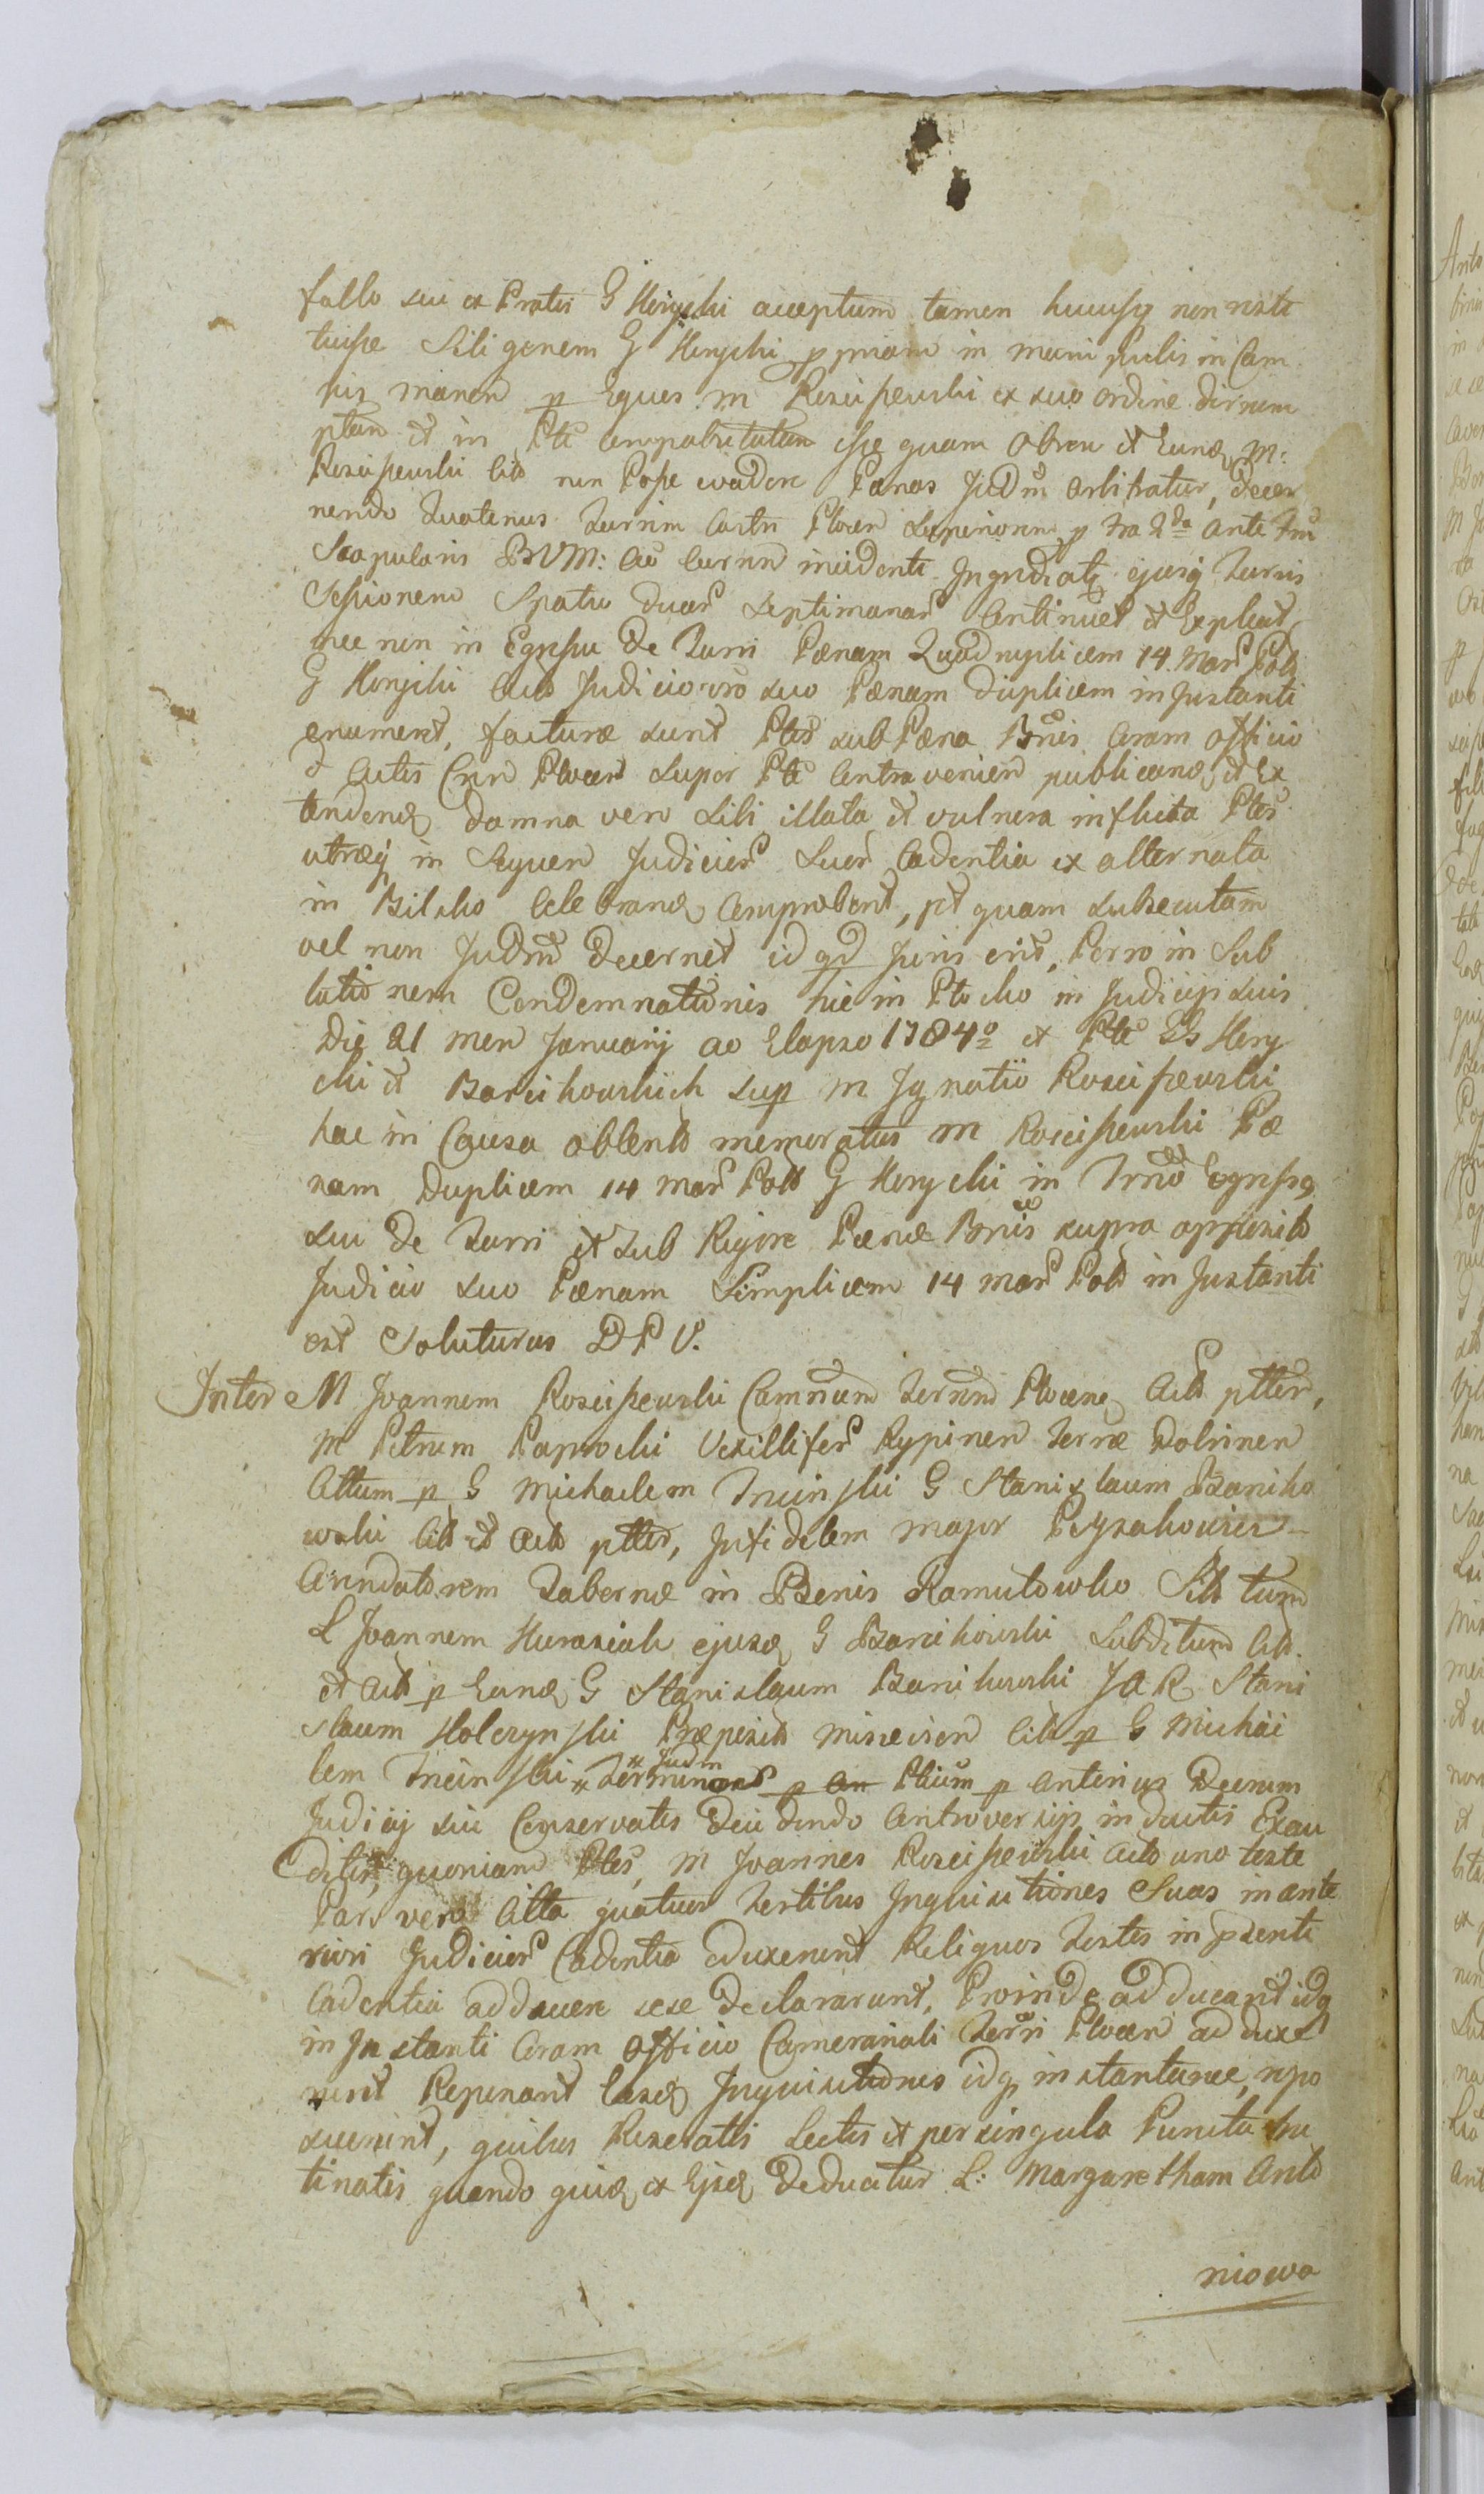 fallo sui ex Pratis G Herychi acceptum tamen hucusq non resti
tuisse Siliginem G Herychi ppriam in manipulis in Cam
pis manen p Eques M Rosciszewski ex suo ordine dirum
ptam et in Pte compabulatam esse quam obrem et Eund M:
Rosciszewski Citt non Posse evadere Pænas Judm arbitratur, decer
nendo Quatenus Turrim Castri Plocen Superiorem p fra 2da ante Fm
Scapularis BVM: ao currn incidenti Ingrediatq ejusq Turris
Sessionem Spatio duar Septimanar Continuet et Expleat,
nec non in Egressu de Turri Pænam Quadruplicem 14 Mar Pol
G Herychi Citt Judicio vro suo Pænam duplicem in Instanti
enument, facturæ sunt Ptes sub Pæna Bnis Coram officio
et Actis Cnn Plocen super Pte Contravenien publicand et Ex
tendend damna vero sibi illata et vulnera inflicta Ptes
utræq in Sequen Judicior Suor Cadentia ex alternata
in Bilsko Celebrand Comprobent, pt quam subsecutam
vel non Judm decernet id qd Juris erit, Porro in Sub
lationem Condemnationis hic in Plocko in Judicijs suis
Die 21 men Januarij ao Elapso 1784o ex Pte GG Hery
chi et Barcikowskich sup M Ignatio Rosciszewski
hac in Causa obtents memoratus M Rosciszewski Pæ
nam Duplicem 14 mar Pol G Herychi in Trno Egressq
sui de Turri et sub Rigore Pænæ Bnis supra appositæ
Judicio suo Pænam Simplicem 14 mar Pol in Instanti
est Soluturus DPV.
Inter M Joannem Rosciszewski Camrium Terrm Plocens Actt ptter,
M Petrum Paprocki Vexillifer Rypinen Terræ Dobrinen
Cittum p G Michaelem Trcinski G Stanislaum Barciko
wski Citt et Actt ptter, Infidelem Major Peysakowicz
Arendatorem Tabernæ in Bonis Ramutowko Cittum
L Joannem Kuraziak ejusd G Barcikowski Subditum Citt
et Actt p Eund G Stanislaum Barcikowski JAR Stani
slaum Holczynski Præposit Misiecien Citt p G Michae
lem Trcinski * Judm
Terminor p an Ptium p anterius Decretum
Judicij sui Conservatis deci dendo Controversijs inductis Exau
ditis, quoniam Ptes, M Joannes Rosciszewski Actt uno teste
Pars vero Citta quatuor Testibus Inquisitiones Suas in ante
riori Judicior Cadentia eduxerunt Reliquos Testes in psenti
Cadentia adducere sese declararunt, Proinde adducant idq
in Instanti Coram officio Camerariali Terri Plocen ad duxe
runt Reponant Easd Inquisitiones idq instantanee, repo
suerunt, quibus Reseratis Lectis et per singula Puncta tru
tinatis quando quid ex Ejsd deducitur L: Margaretham Anto
niowa